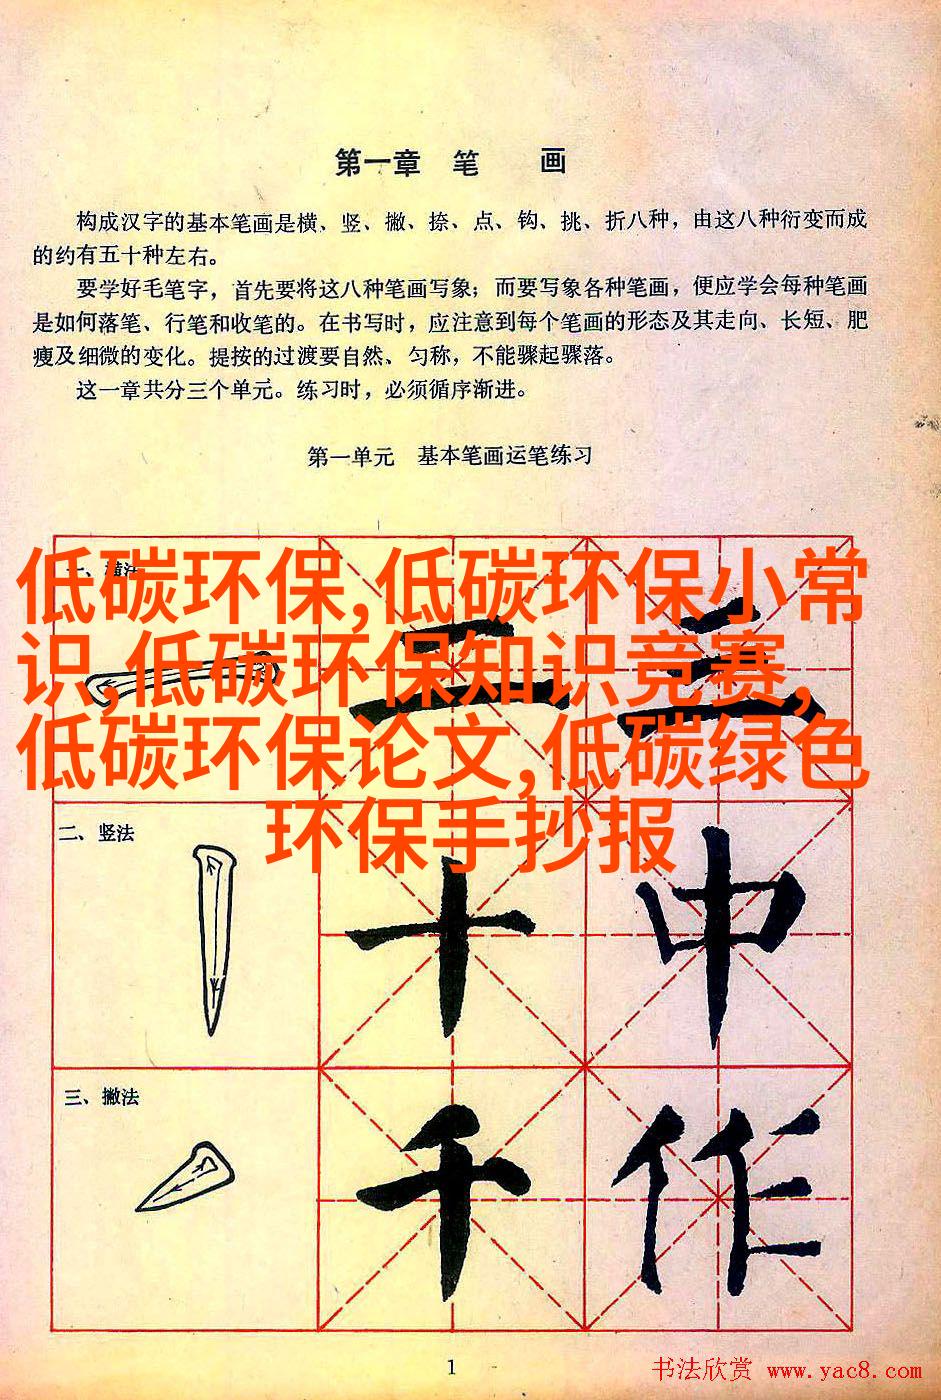 第一章 笔 画
构成汉字的基本笔画是横、竖、撇、捺、点、钩、挑、折八种，由这八种衍变而成
的约有五十种左右。
要学好毛笔字，首先要将这八种笔画写象；而要写象各种笔画，便应学会每种笔画
是如何落笔、行笔和收笔的。在书写时，应注意到每个笔画的形态及其走向、长短、肥
瘦及细微的变化。提按的过渡要自然、匀称，不能骤起骤落。
这一章共分三个单元。练习时，必须循序渐进。
第一单元 基本笔画运笔练习
一、横法
二 三
低碳环保,低碳环保小常
识,低碳环保知识竞赛,
低碳环保论文,低碳绿色
环保手抄报
二、竖法
十 中
三、撇法
千 作
1
书法欣赏 www.yac8.com